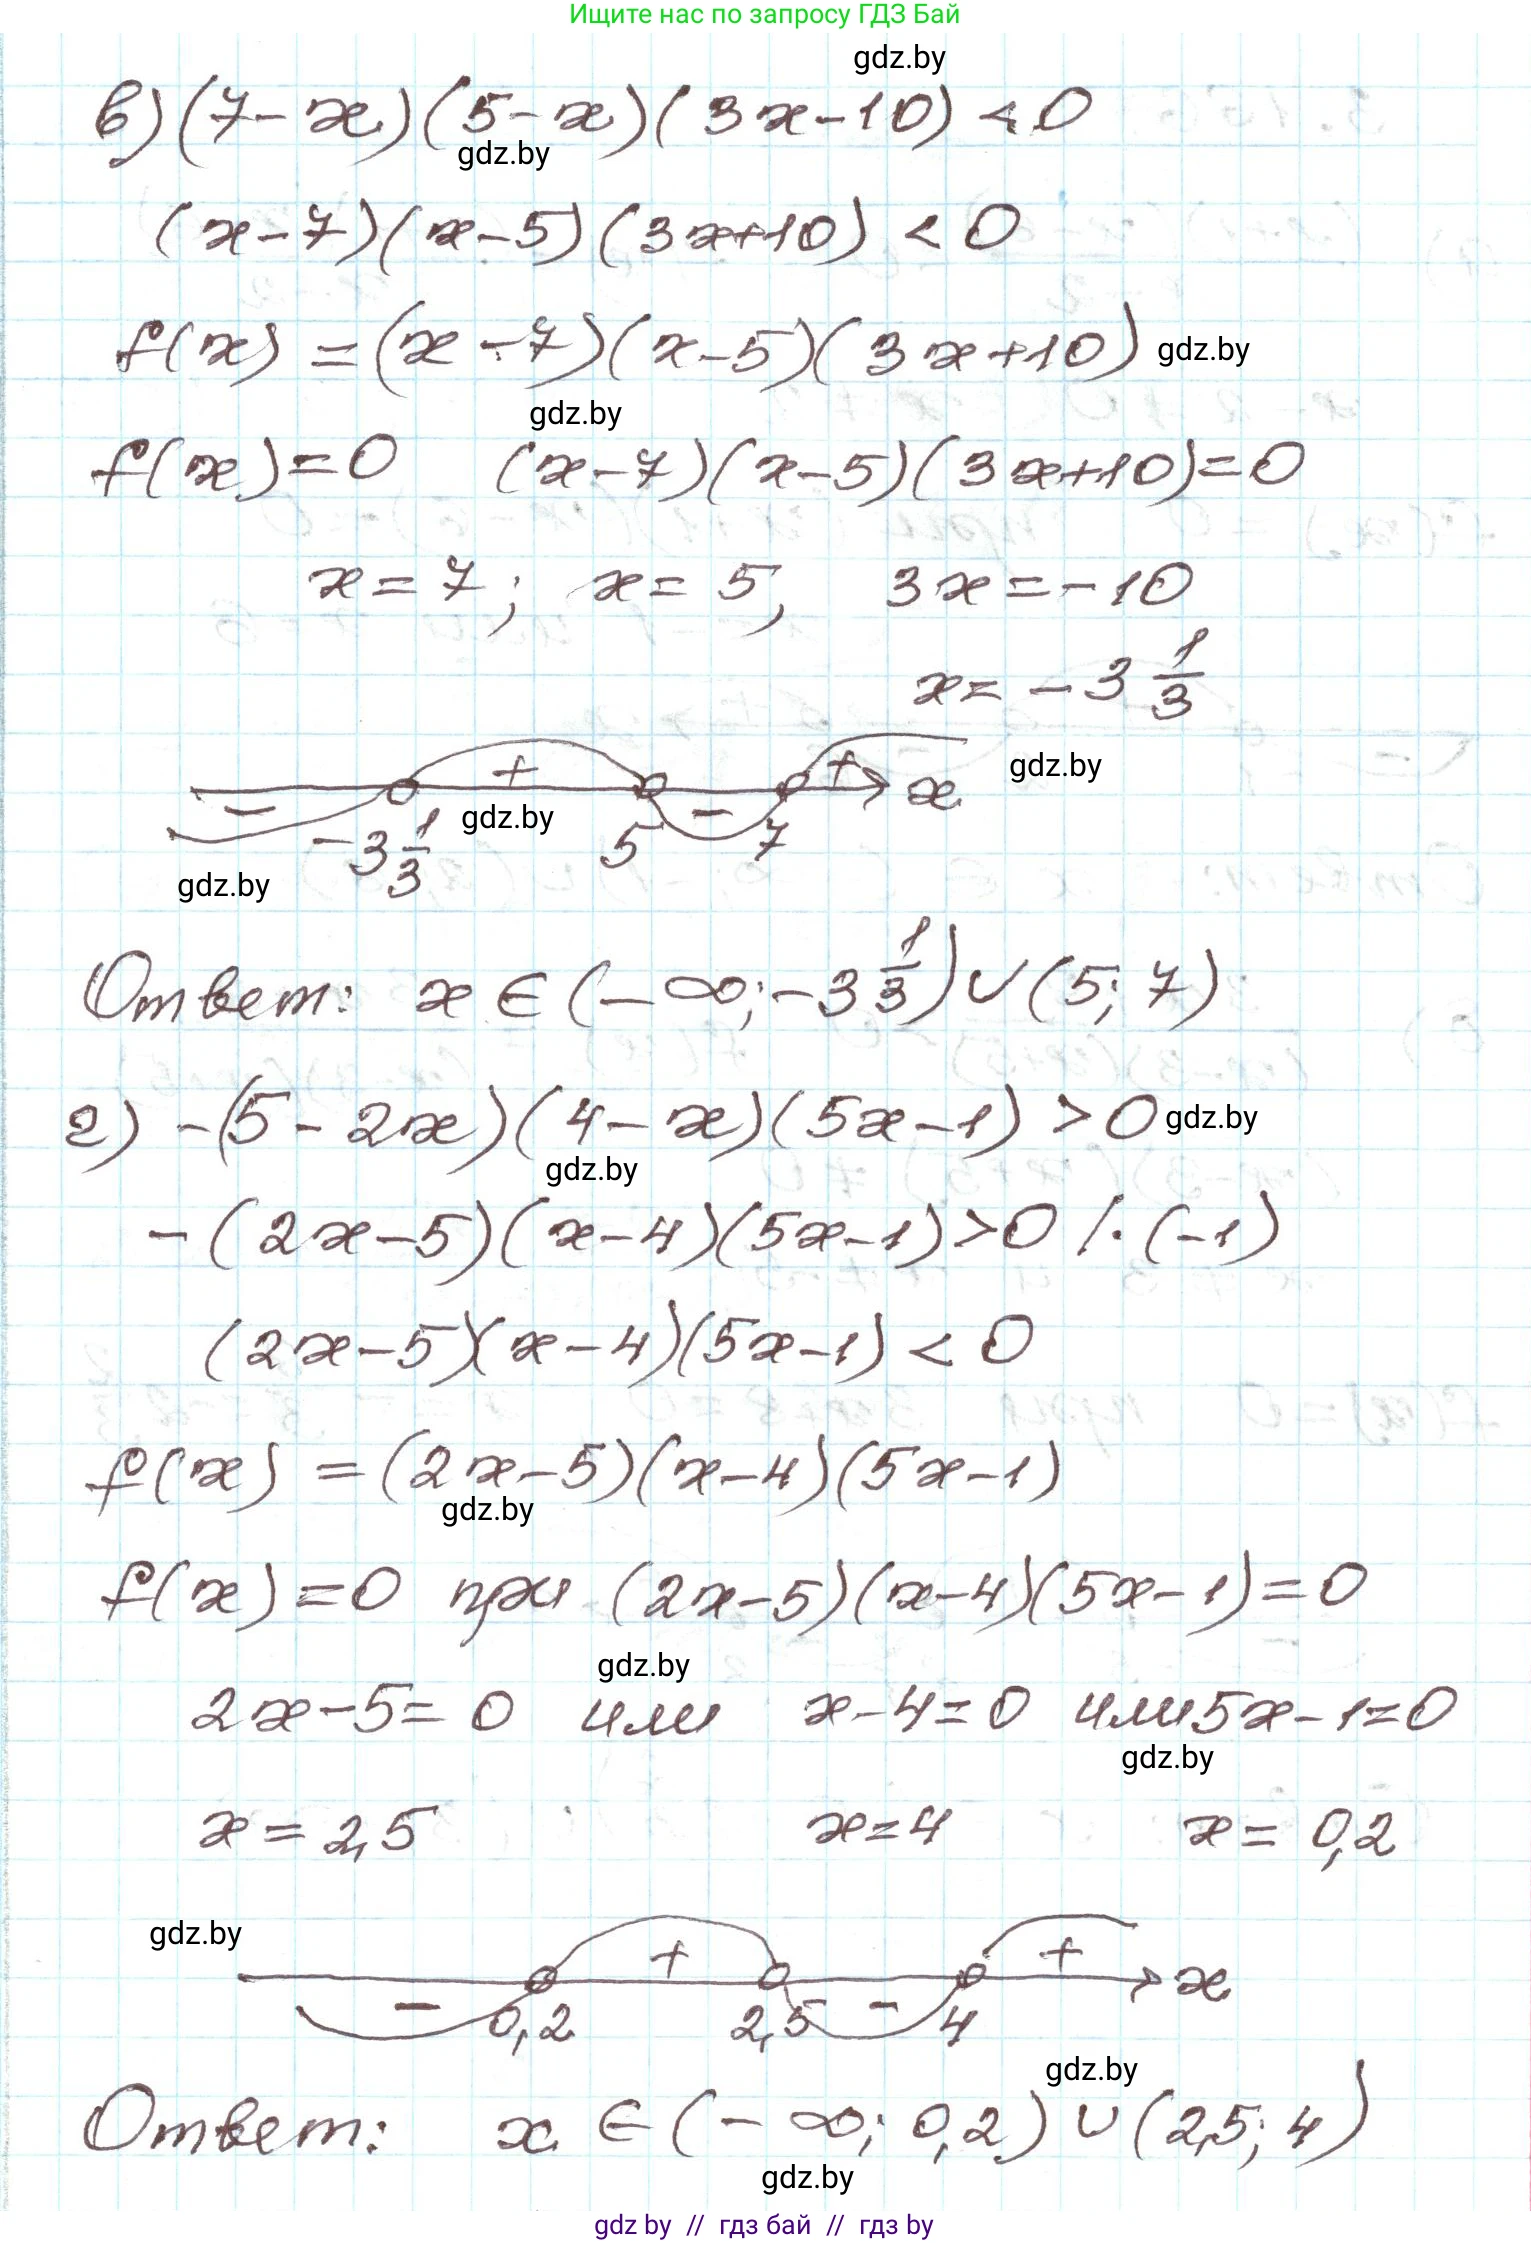 Ищите нас по запросу ГДЗ Бай
gdz.by
в) (7-x)(5-x)(3x-10) <0
gdz.by
(x-7)(x-5)(3x+10) <0
f(x) =(x-7)(x-5)(3x+10) gdz.by
gdz.by
f(x)=0 (x-7)(x-5)(3x+10)=0
x=7; x=5, 3x=-10
x= -3 1/3
- + - + x gdz.by
-3 1/3 gdz.by 5 7
gdz.by
Ответ: x∈(-∞;-3 1/3)∪(5; 7)
г) -(5-2x)(4-x)(5x-1) >0 gdz.by
gdz.by
-(2x-5)(x-4)(5x-1)>0 /·(-1)
(2x-5)(x-4)(5x-1) <0
f(x) =(2x-5)(x-4)(5x-1)
gdz.by
f(x)=0 при (2x-5)(x-4)(5x-1)=0
gdz.by
2x-5=0 или x-4=0 или 5x-1=0
gdz.by
x=2,5 x=4 x=0,2
gdz.by
- + - + x
0,2 2,5 4
gdz.by
Ответ: x∈(-∞; 0,2)∪(2,5; 4)
gdz.by
gdz by // гдз бай // гдз by